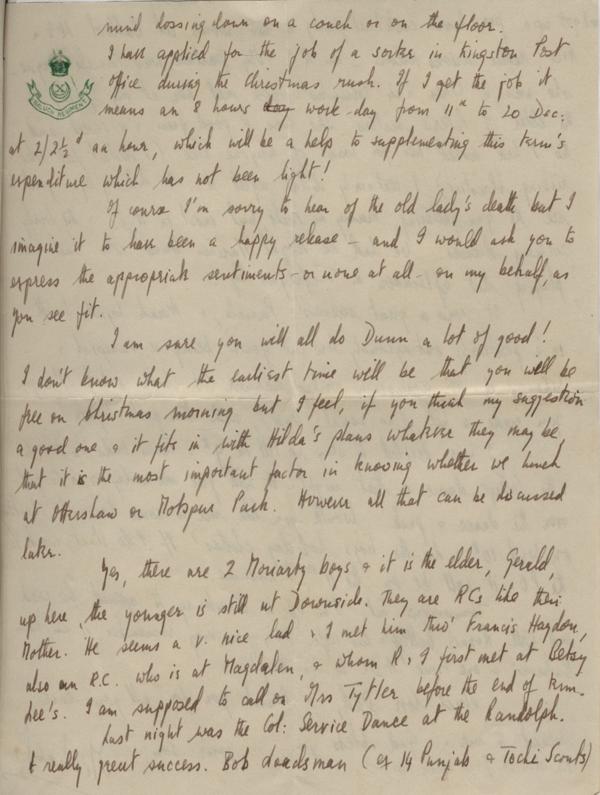 mind dossing down on a couch or on the floor.
I have applied for the job of a sorter in Kingston Post
office during the Christmas rush. If I get the job it
BALUCH REGIMENT
means an 8 hours day work day from 11th to 20 Dec:
at 2/2½d an hour, which will be a help to supplementing this term's
expenditure which has not been light!
Of course I'm sorry to hear of the old lady's death but I
imagine it to have been a happy release - and I would ask you to
express the appropriate sentiments - or none at all - on my behalf, as
you see fit.
I am sure you will all do Dunn a lot of good!
I don't know what the earliest time will be that you will be
free on Christmas morning but I feel, if you think my suggestion
a good one & it fits in with Hilda's plans whatever they may be,
that it is the most important factor in knowing whether we lunch
at Ottershaw or Motspur Park. However all that can be discussed
later.
Yes, there are 2 Moriarty boys & it is the elder, Gerald,
up here, the younger is still at Downside. They are RCs like their
Mother. He seems a v. nice lad & I met him thro' Francis Haydon,
also an R.C. who is at Magdalen, & whom R & I first met at Betsy
Lee's. I am supposed to call on Mrs Tytler before the end of term.
Last night was the Col: Service Dance at the Randolph.
A really great success. Bob (ex 14 Punjab & Tochi Scouts)